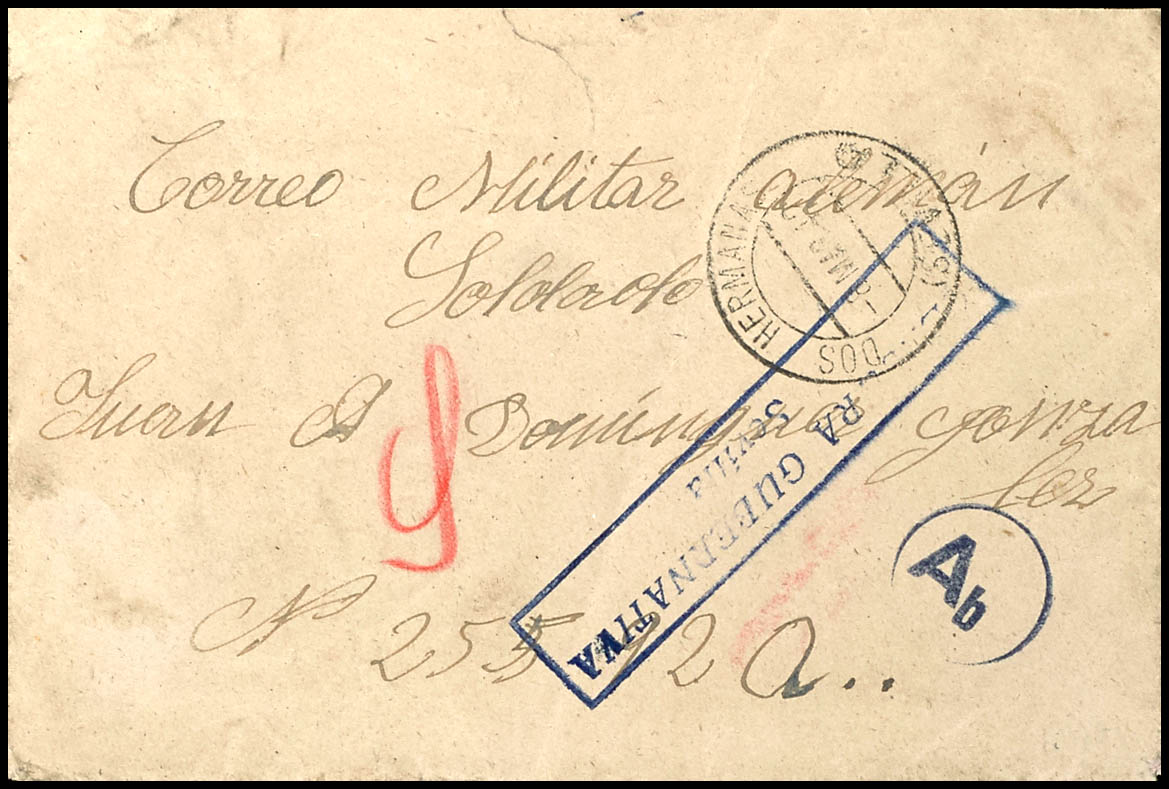 Correo Militar alemán
Soldado
Juan Domínguez Gonza
lez
Nº 255 2 A..
DOS HERMANAS
MAR
(SEVILLA)
RA GUBERNATIVA
Sevilla
Ab